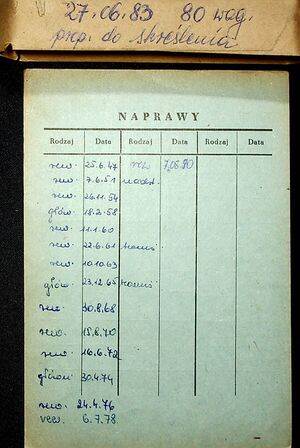 27.06.83 80 wag.
prop. do skreślenia
NAPRAWY
Rodzaj Data Rodzaj Data Rodzaj Data
rew. 25.6.47 rew. 7.08.80
rew. 7.6.51
rew. 26.11.54
głów. 18.2.58
rew. 11.1.60
rew. 22.6.61
rew. 10.10.63
głów. 23.12.65
rew. 30.8.68
rew. 15.6.70
rew. 16.6.72
główn. 30.4.74
rew. 24.4.76
rew. 6.7.78.